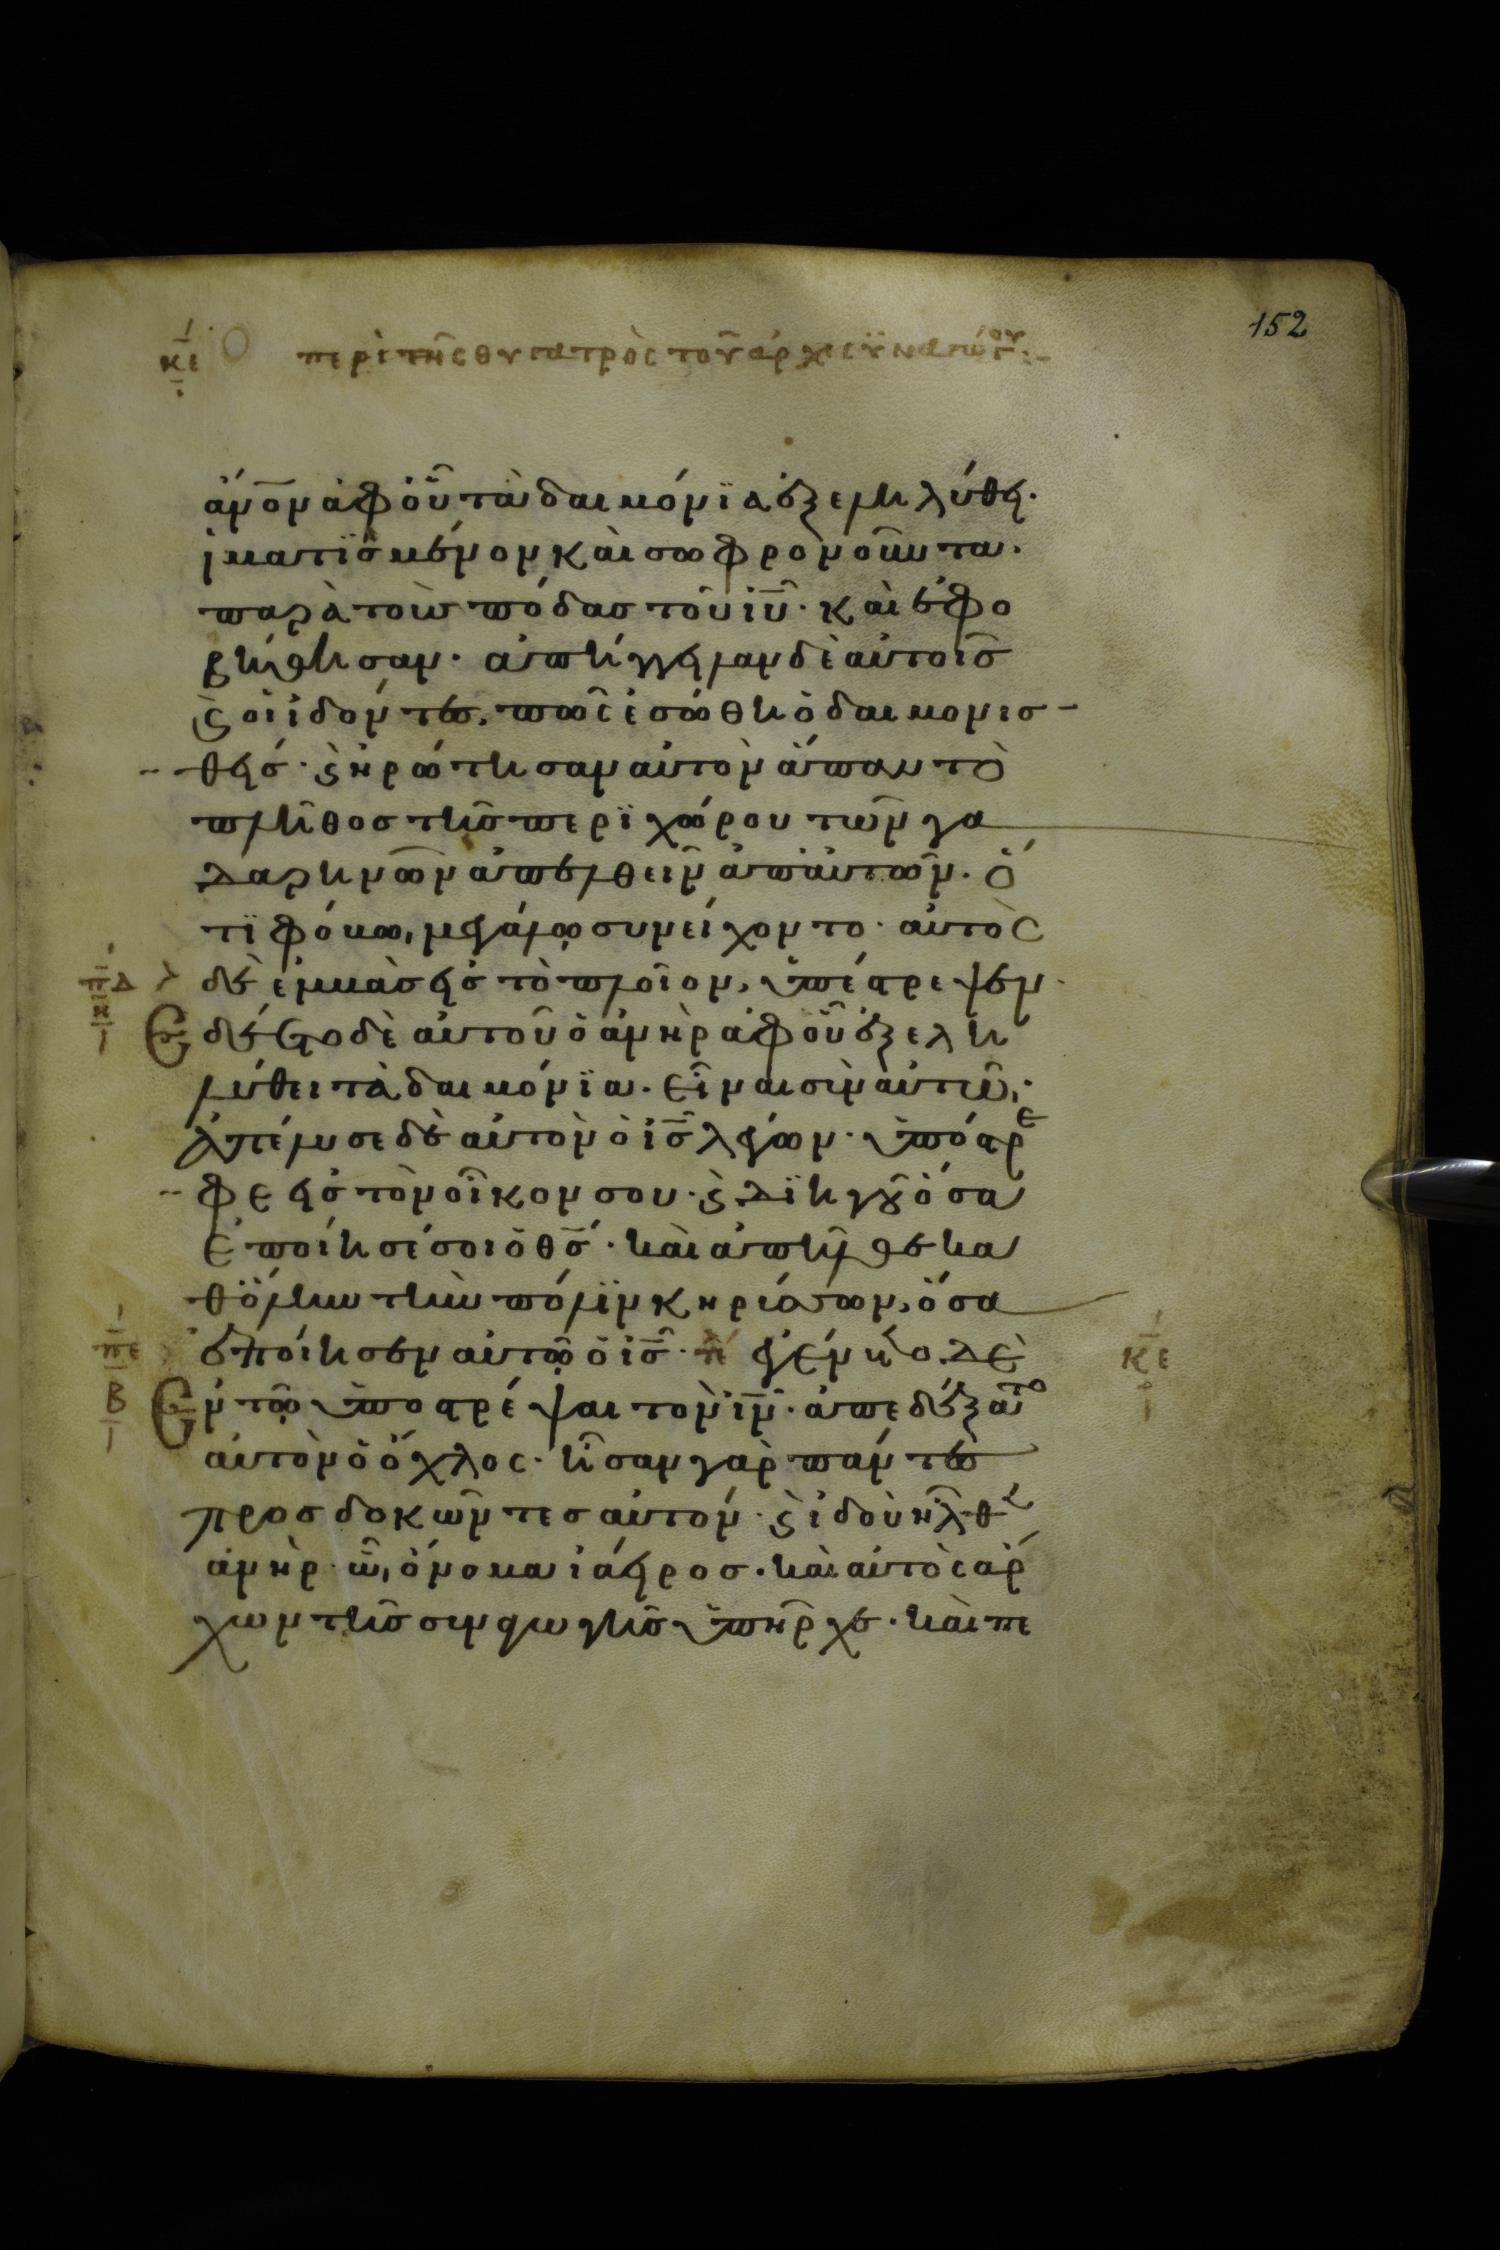 152
κε περὶ τῆς θυγατρὸς τοῦ ἀρχισϋναγώγου
ἄνον ἀφ οὗ τὰ δαιμόνϊα ἐξεληλύθει·
ἱματϊσμένον καὶ σωφρονοῦντα·
παρὰ τοὺς πόδας τοῦ ιῦ· καὶ ἐφο
βήθησαν· ἀπήγγειλαν δὲ αὐτοῖς
ϛ οἱ ἰδόντες, πῶς ἐσώθη ὁ δαιμονισ
θείς· ϛ ἠρώτησαν αὐτὸν ἅπαν τὸ
πλῆθος τῆς περιχώρου τῶν γα
δαρηνῶν ἀπελθεῖν ἀπ αὐτῶν· ὅ
τϊ φόβω μεγάλω συνείχοντο· αὐτὸς
πδ δὲ ἐμβὰς εἰς τὸ πλοῖον, ὑπέστρεψεν·
η Ἐδέετο δὲ αὐτοῦ ὁ ἀνὴρ ἀφ οὗ ἐξελη
λύθει τὰ δαιμόνϊα· εἶναι σὺν αὐτῶ·
ἀπέλυσε δὲ αὐτὸν ὁ ις λέγων· ὑπόστρε
φε εἰς τὸν οἶκον σου· ϛ διηγοῦ ὅσα
ἐποίησέ σοι ὁ θς· καὶ ἀπῆλθε κα
θ ὅλην τὴν πόλϊν κηρύσσων, ὅσα
πε ἐποίησεν αὐτῶ ὁ ις· ἐγένετο δὲ κε
β Ἐν τῶ ὑποστρέψαι τὸν ιν· ἀπεδέξατο
αὐτὸν ὁ ὄχλος· ἦσαν γὰρ πάντες
προσδοκῶντες αὐτόν· ϛ ἰδοὺ ἦλθεν
ἀνὴρ ὧ ὄνομα ἰάειρος· καὶ αὐτὸς ἄρ
χων τῆς συναγωγῆς ὑπῆρχε· καὶ πε